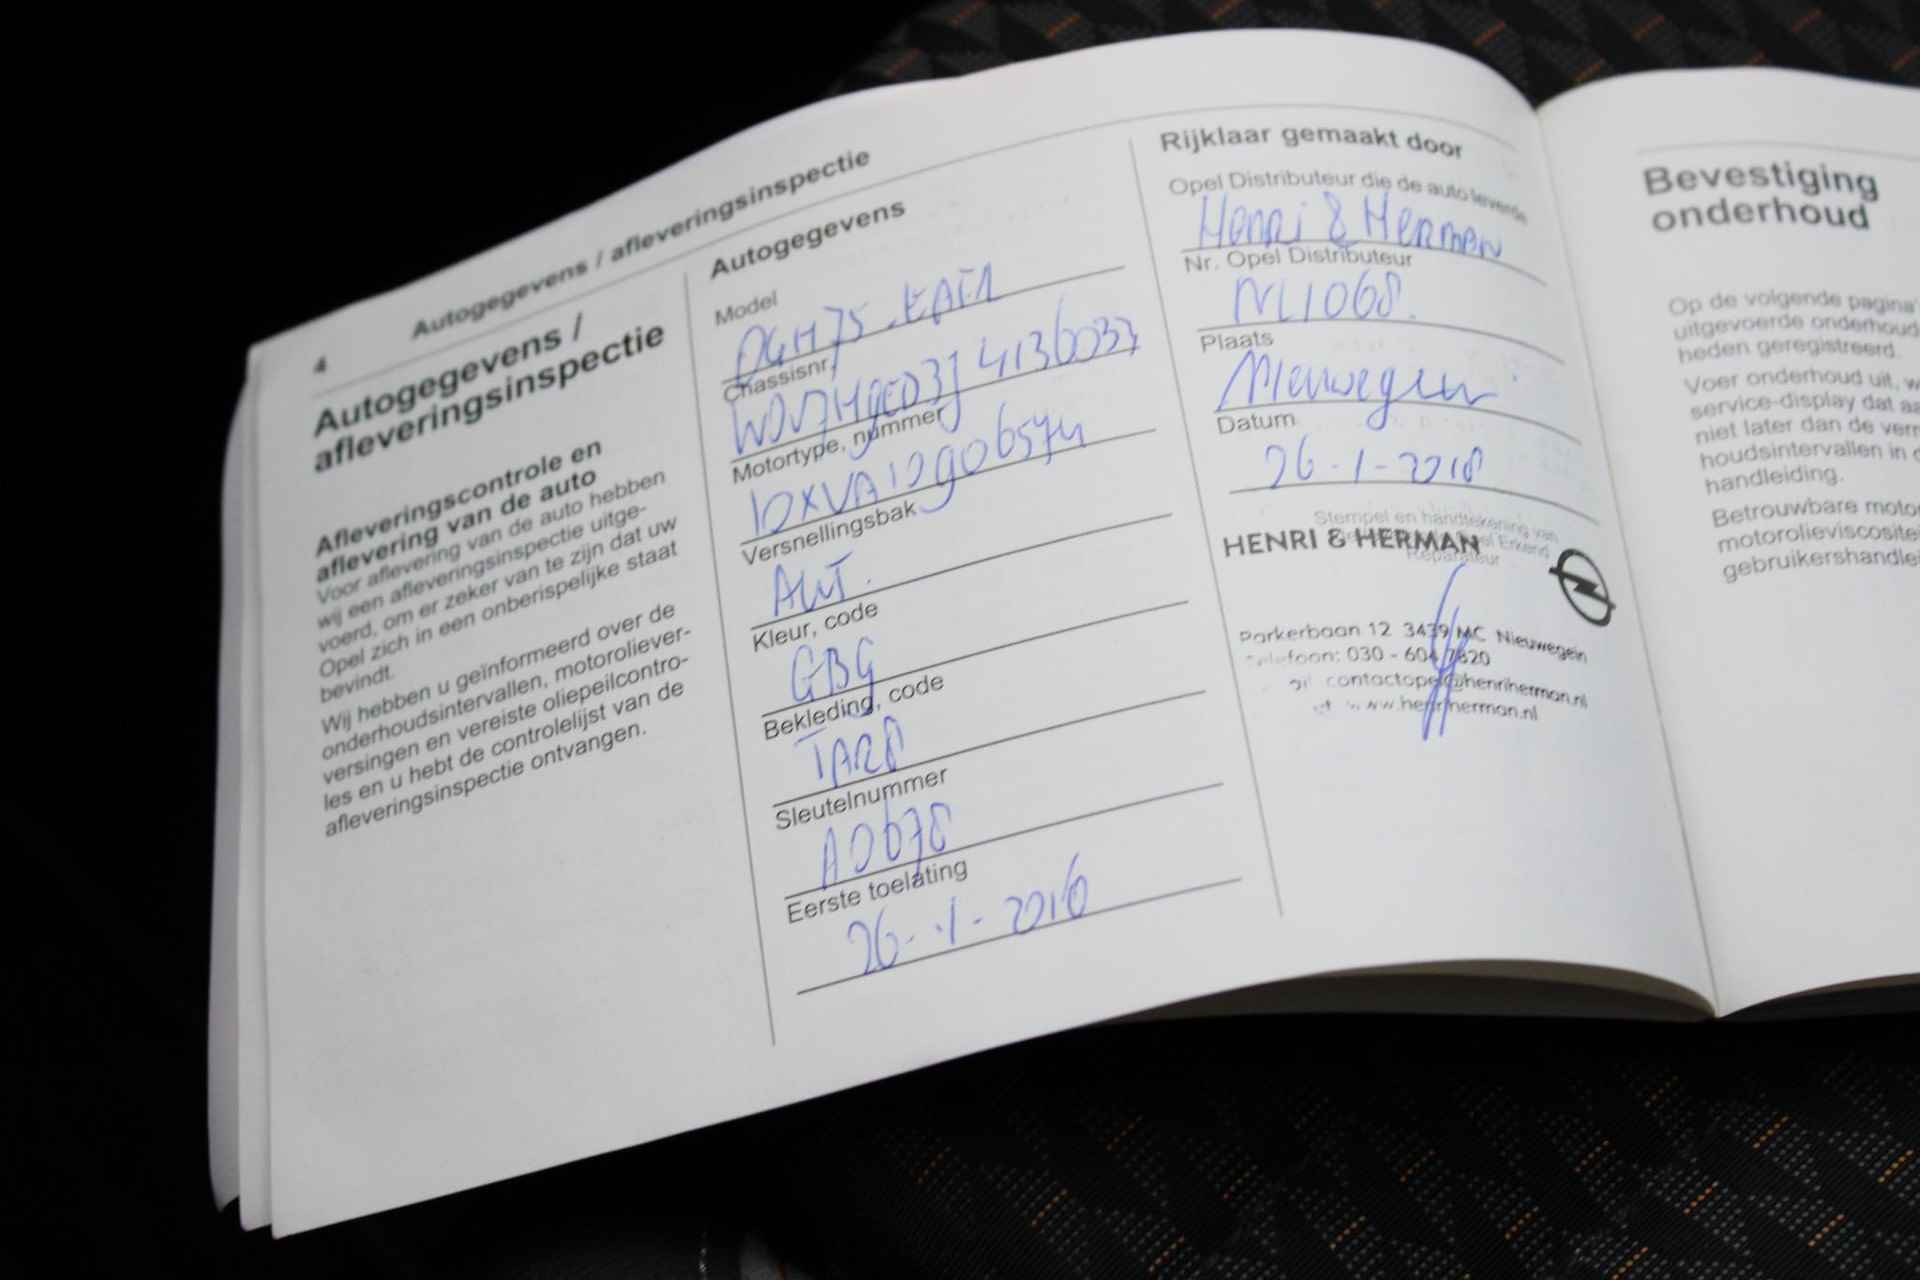 4
Autogegevens / afleveringsinspectie
Autogegevens /
afleveringsinspectie
Afleveringscontrole en
aflevering van de auto
Voor aflevering van de auto hebben
wij een afleveringsinspectie uitge-
voerd, om er zeker van te zijn dat uw
Opel zich in een onberispelijke staat
bevindt.
Wij hebben u geïnformeerd over de
onderhoudsintervallen, motoroliever-
versingen en vereiste oliepeilcontro-
les en u hebt de controlelijst van de
afleveringsinspectie ontvangen.
Autogegevens
Model
Chassisnr.
Motortype, nummer
Versnellingsbak
AUT.
Kleur, code
GBG
Bekleding, code
TAR8
Sleutelnummer
A0678
Eerste toelating
26-1-2018
Rijklaar gemaakt door
Opel Distributeur die de auto leverde
Henri & Herman
Nr. Opel Distributeur
NL1068.
Plaats
Nieuwegein
Datum
26-1-2018
Stempel en handtekening van
Erkend
Reparateur
HENRI & HERMAN
Parkerbaan 12 3439 MC Nieuwegein
Telefoon: 030 - 604 7820
contactopel@henriherman.nl
www.henriherman.nl
Bevestiging
onderhoud
Op de volgende pagina'
uitgevoerde onderhoud
heden geregistreerd.
Voer onderhoud uit, w
service-display dat aa
niet later dan de verm
houdsintervallen in d
handleiding.
Betrouwbare motor
motorolieviscositei
gebruikershandle